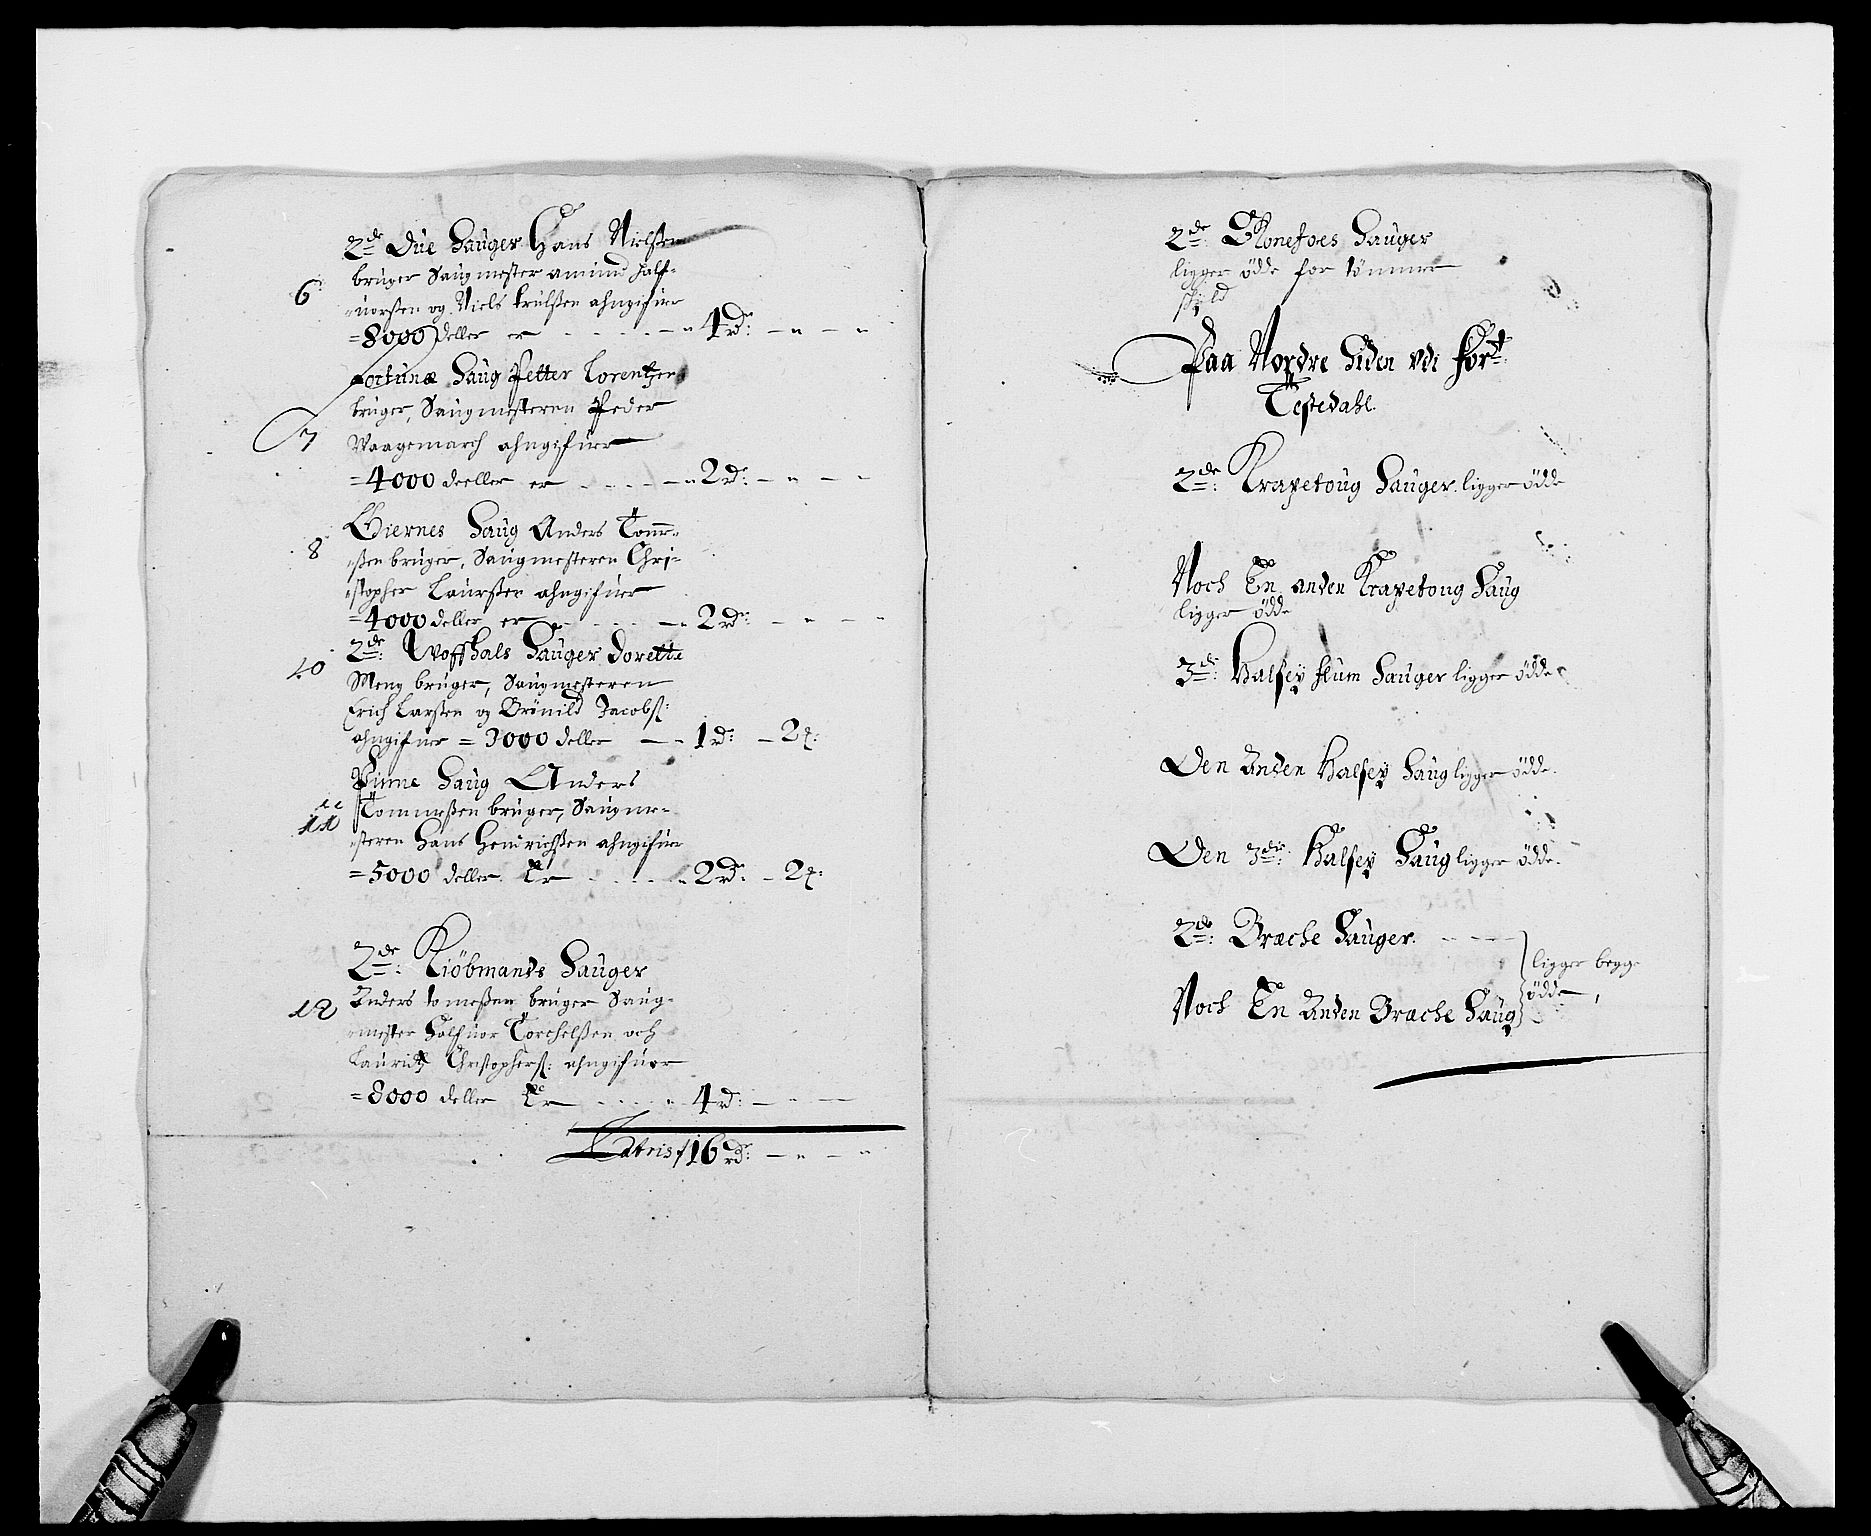 2de Due Sauger Hans Nielssen
6 bruger Saugmester amund Half-
uorssen og Niels trulssen ahngifuer
=8000 deller er - - - - - - 4 rdr: - " - "
Fortunæ Saug Petter Lorentzen
bruger, Saugmesteren Peder
7 Waagemarch ahngifuer
=4000 deeller er - - - - - - 2 rdr: - " - -
Giernes Saug Anders Tomme-
8 ssen bruger, Saugmesteren Chri-
stopher Laurssen ahngifuer
=4000 deller er - - - - - 2 rdr: - " - -
2de: Woffhals Sauger Dorette
10 Meng bruger, Saugmesteren
Erich Larssen og Brönild Jacobs:
ahngifuer = 3000 deller - - 1 rdr: - 2
Pinne Saug Anders
11 Tommessen bruger, Saugme-
steren Hans Hendrichssen ahngifuer
=5000 deller Er - - - - - 2 rdr: - 2
2de: Kiöbmands Sauger
12 Anders tomessen bruger Saug-
mester Halfuor Torchelssen och
Lauridtz Christophers: ahngifuer
=8000 deller Er - - - - 4 rdr: - - -
Latris 16 rdr: - " - "
2de: Sauger
ligger ödde for tömmer
Paa Nordre Siden vdi for:
Testedahl.
2de: Krapetoug Sauger ligger ödde
Noch En anden Krapetoug Saug
ligger ödde
3de: Halsey flum Sauger ligger ödde
Den Anden Halsey Saug ligger ödde.
Den 3die: Halsey Saug ligger ödde.
2de: Bræche Sauger. - - -
ligger begge
ödde,
Noch En Anden Bræche Saug